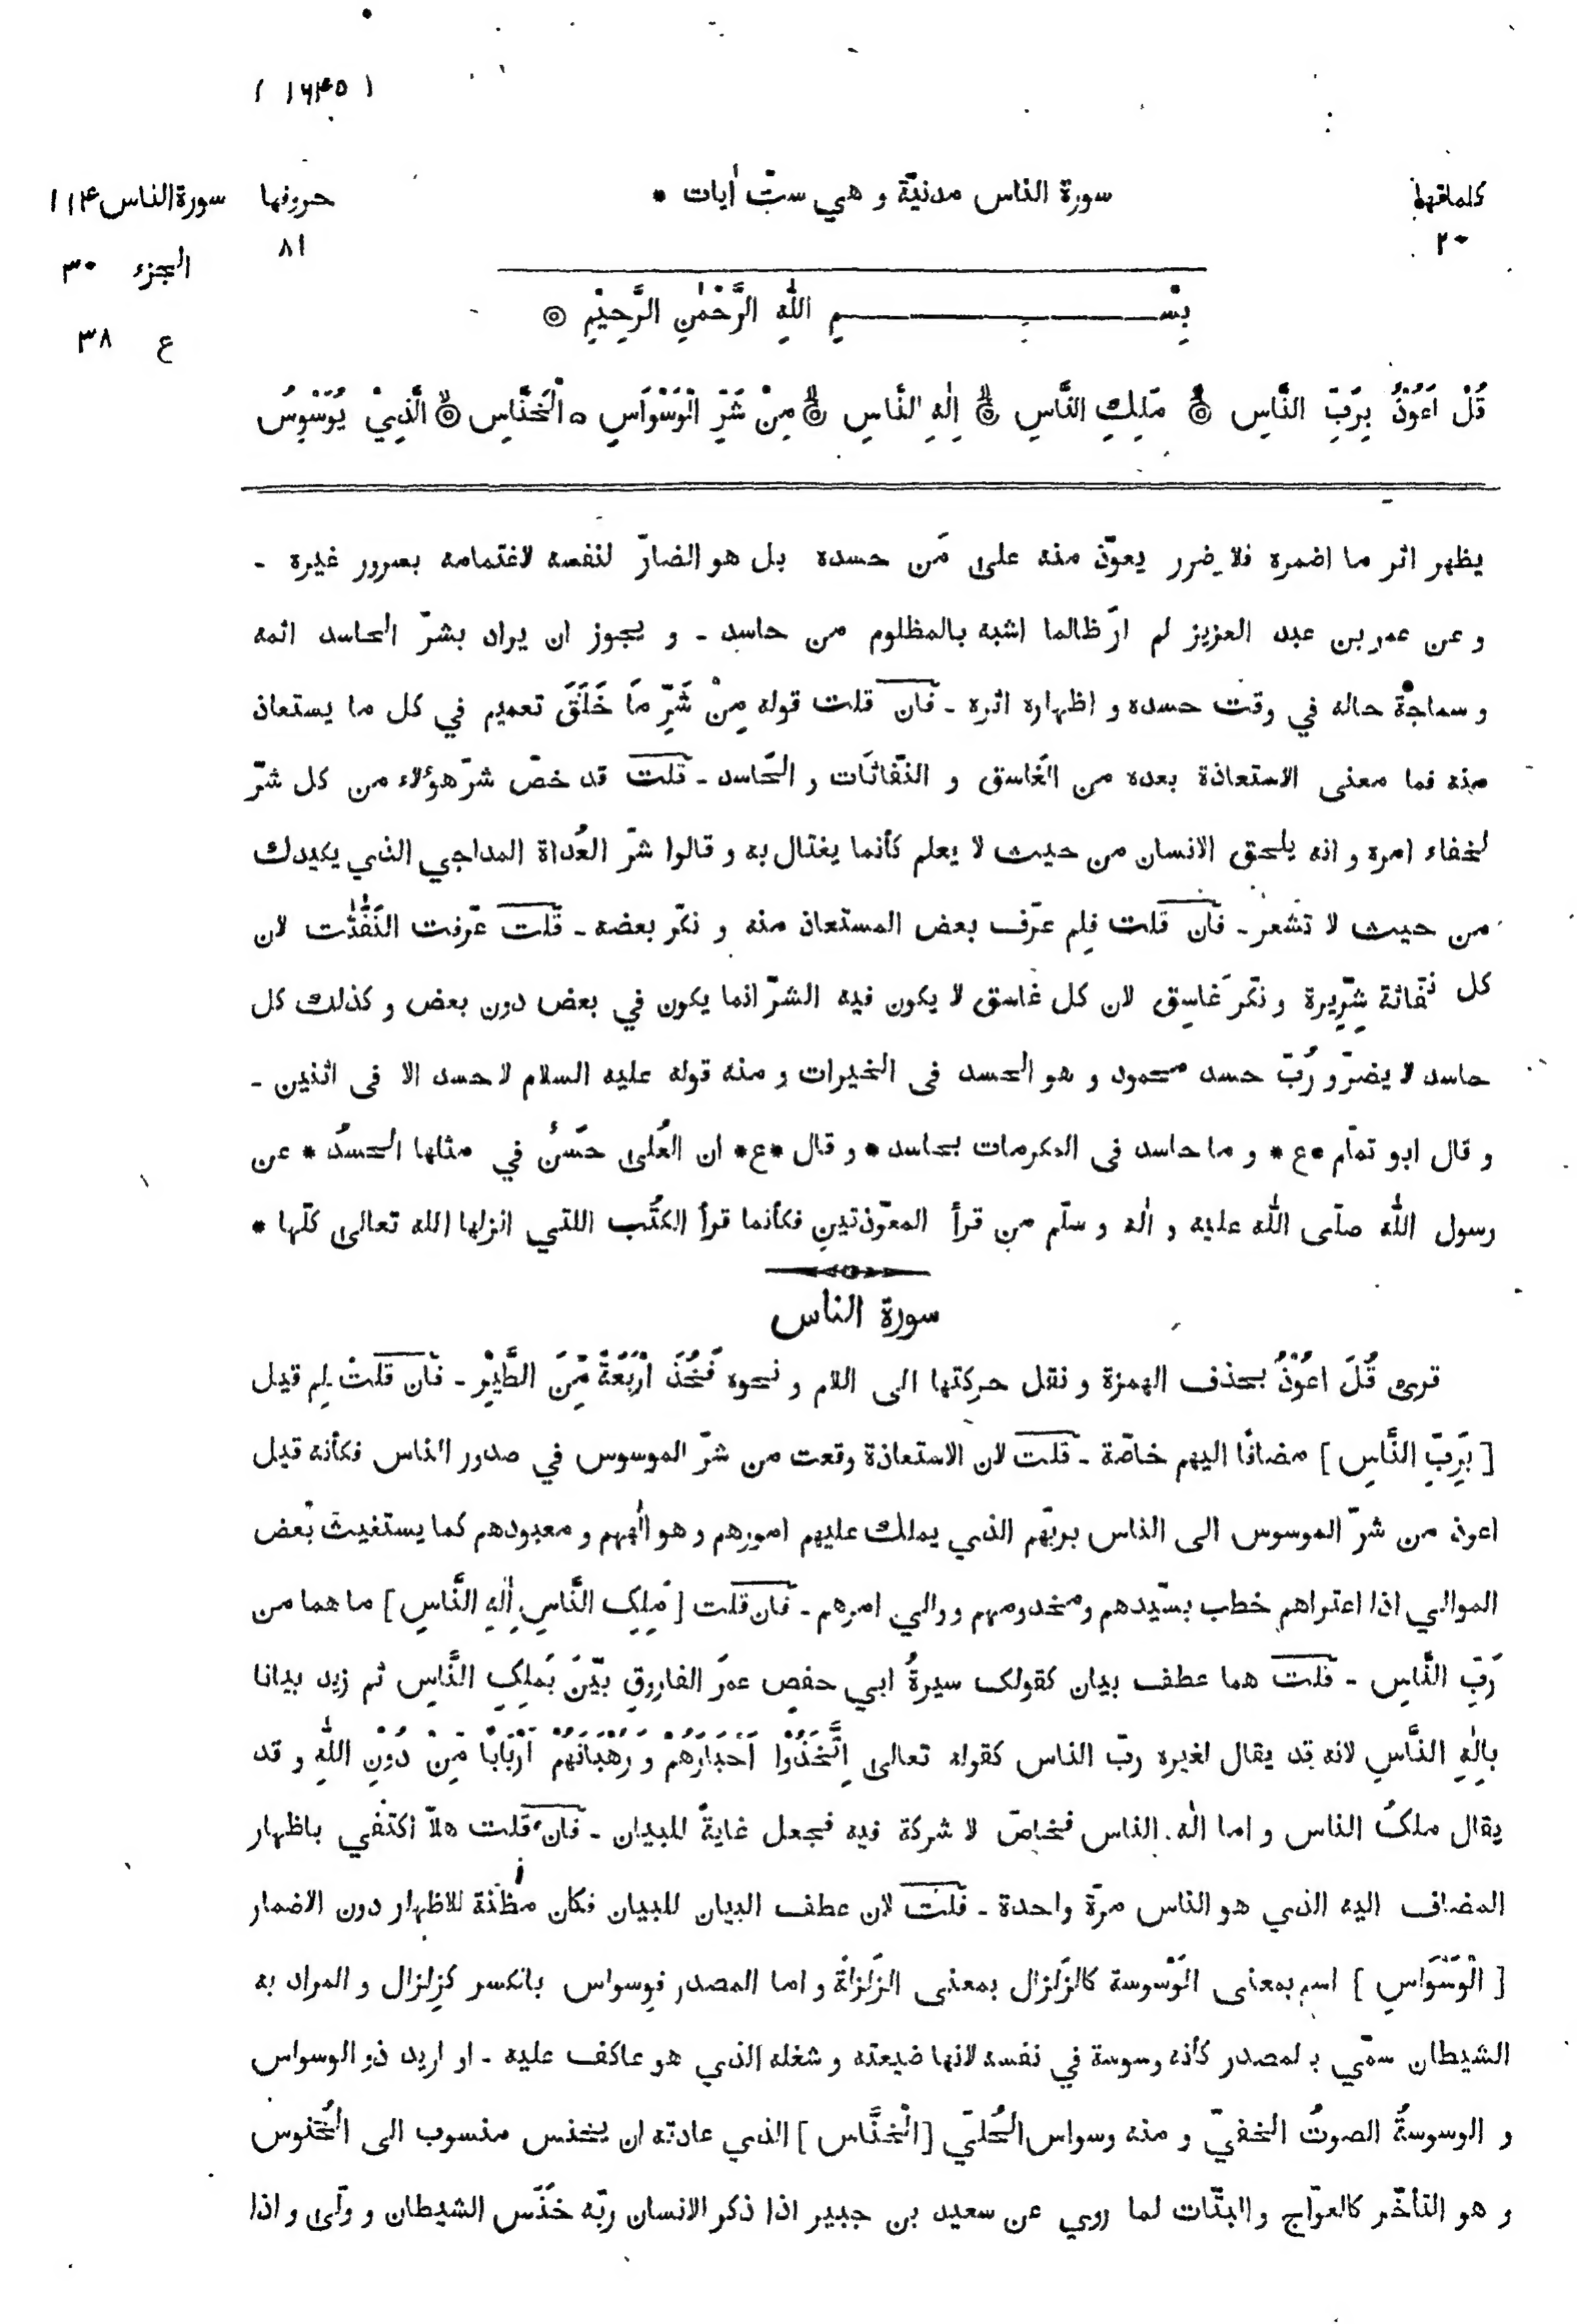 ( ۱۶۴۵ )
كلماتها سورة الناس مدنيّة و هي ستّ اٰيات * حروفها سورة الناس ۱۱۴
۲۰ ۸۱
الجزء ۳۰
بِسْــــــمِ اللّٰهِ الرَّحْمٰنِ الرَّحِيْمِ ◎
ع ۳۸
قُلْ اَعُوْذُ بِرَبِّ النَّاسِ ◎ مَلِكِ النَّاسِ ◎ اِلٰهِ النَّاسِ ◎ مِنْ شَرِّ الْوَسْوَاسِ ۵ الْخَنَّاسِ ◎ الَّذِيْ يُوَسْوِسُ
يظهر اثر ما اضمره فلا ضرر يعوّد منه على مَن حسده بل هو الضارّ لنفسه لاغتمامه بسرور غيره -
و عن عمر بن عبد العزيز لم ارَ ظالما اشبه بالمظلوم من حاسد - و يجوز ان يراد بشرّ الحاسد اثمه
و سماجةُ حاله في وقت حسده و اظهاره اثره - فان قلت قوله مِنْ شَرِّ مَا خَلَقَ تعميم في كل ما يستعاذ
منه فما معنى الاستعاذة بعده من الغَاسق و النفّاثَات و الحَاسد - قلت قد خصّ شرّ هؤلاء من كل شرّ
لخفاء امره و انه يلحق الانسان من حيث لا يعلم كأنما يغتال به و قالوا شرّ العُداة المداجي الذي يكيدك
من حيث لا تشعر - فان قلت فلِم عرّف بعض المستعاذ منه و نكّر بعضه - قلت عرّفت النَفّٰثٰت لان
كل نفّاثة شِرّيرة و نكّر غَاسِق لان كل غاسق لا يكون فيه الشرّ انما يكون في بعض دون بعض و كذلك كل
حاسد لا يضرّ و رُبّ حسد محمود و هو الحسد فى الخيرات و منه قوله عليه السلام لا حسد الا فى اثنين -
و قال ابو تمّام *ع* و ما حاسد فى المكرمات بحاسد * و قال *ع* ان العُلى حَسَنٌ في مثلها الحسدُ * عن
رسول اللّٰه صلّى اللّٰه عليه و اٰله و سلّم من قرأ المعوّذتينِ فكأنما قرأ الكتُب اللتي انزلها اللّه تعالى كلّها *
سورة الناس
قرئ قُلَ اعُوْذُ بحذف الهمزة و نقل حركتها الى اللام و نحوه فَخُذَ ارْبَعَةً مِّنَ الطَّيْرِ - فان قلت لِم قيل
[ بِرَبِّ النَّاسِ ] مضافا اليهم خاصّة - قلت لان الاستعاذة وقعت من شرّ الموسوس في صدور الناس فكأنه قيل
اعوذ من شرّ الموسوس الى الناس بربّهم الذي يملك عليهم امورهم و هو اٰلٰههم و معبودهم كما يستغيث بعض
الموالي اذا اعتراهم خطب بسيّدهم و مخدومهم و والي امرهم - فان قلت [ مَلِكِ النَّاسِ اِلٰهِ النَّاسِ ] ما هما من
رَبِّ النَّاسِ - قلت هما عطف بيان كقولك سيرةُ ابي حفصٍ عمرَ الفاروقِ بيّنَ بَملِكِ النَّاسِ ثم زيد بيانا
بِالٰهِ النَّاسِ لانه قد يقال لغيره ربّ الناس كقوله تعالى اِتَّخَذُوْا اَحْبَارَهُمْ وَ رُهْبَانَهُمْ اَرْبَابًا مِّنْ دُوْنِ اللّٰهِ و قد
يقال ملكُ الناس و اما اٰله الناس فخاصّ لا شركة فيه فجعل غايةً للبيان - فان قلت هلاّ اكتفي باظهار
المضاف اليه الذي هو الناس مرّة واحدة - قلت لان عطف البيان للبيان فكان مظنّة للاظهار دون الاضمار
[ الْوَسْوَاسِ ] اسم بمعنى الوَسْوسة كالزَلزال بمعنى الزَلزلة و اما المصدر فوِسواس بالكسر كزِلزال و المراد به
الشيطان سمّي بالمصدر كأنه وسوسة في نفسه لانها ضيعته و شغله الذي هو عاكف عليه - او اريد ذو الوسواس
و الوسوسةُ الصوتُ الخفيّ و منه وسواس الحُليّ [ الْخَنَّاسِ ] الذي عادته ان يخنس منسوب الى الخُنوس
و هو التأخّر كالعوّاج و البتّات لما روي عن سعيد بن جبير اذا ذكر الانسان ربّه خَنَس الشيطان و ولّى و اذا